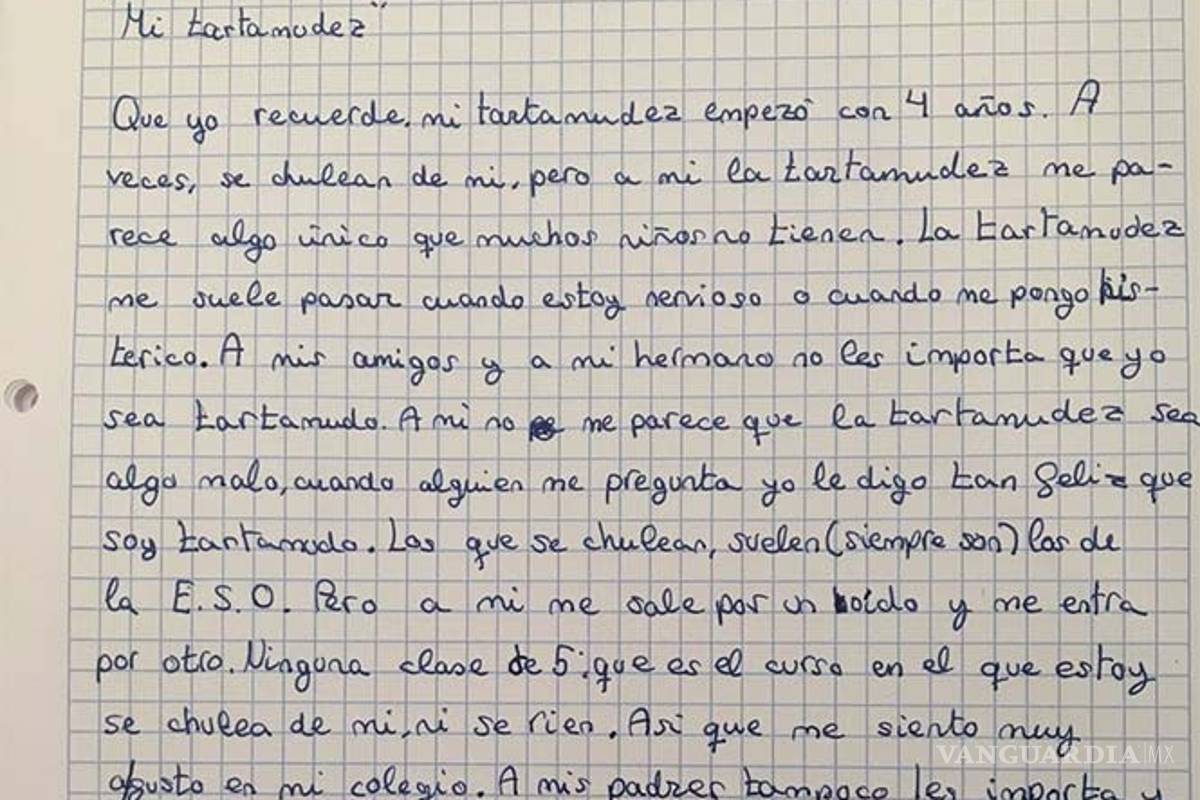 Mi tartamudez"
Que yo recuerde, mi tartamudez empezó con 4 años. A
veces, se chulean de mi, pero a mi la tartamudez me pa-
rece algo único que muchos niños no tienen. La tartamudez
me suele pasar cuando estoy nervioso o cuando me pongo his-
terico. A mis amigos y a mi hermano no les importa que yo
sea tartamudo. A mi no me parece que la tartamudez sea
algo malo, cuando alguien me pregunta yo le digo tan feliz que
soy tartamudo. Los que se chulean, suelen (siempre son) los de
la E.S.O. Pero a mi me sale por un oido y me entra
por otro. Ninguna clase de 5: que es el curso en el que estoy
se chulea de mi, ni se rien. Asi que me siento muy
agusto en mi colegio. A mis padres tampoco les importa y
VANGUARDIA|MX